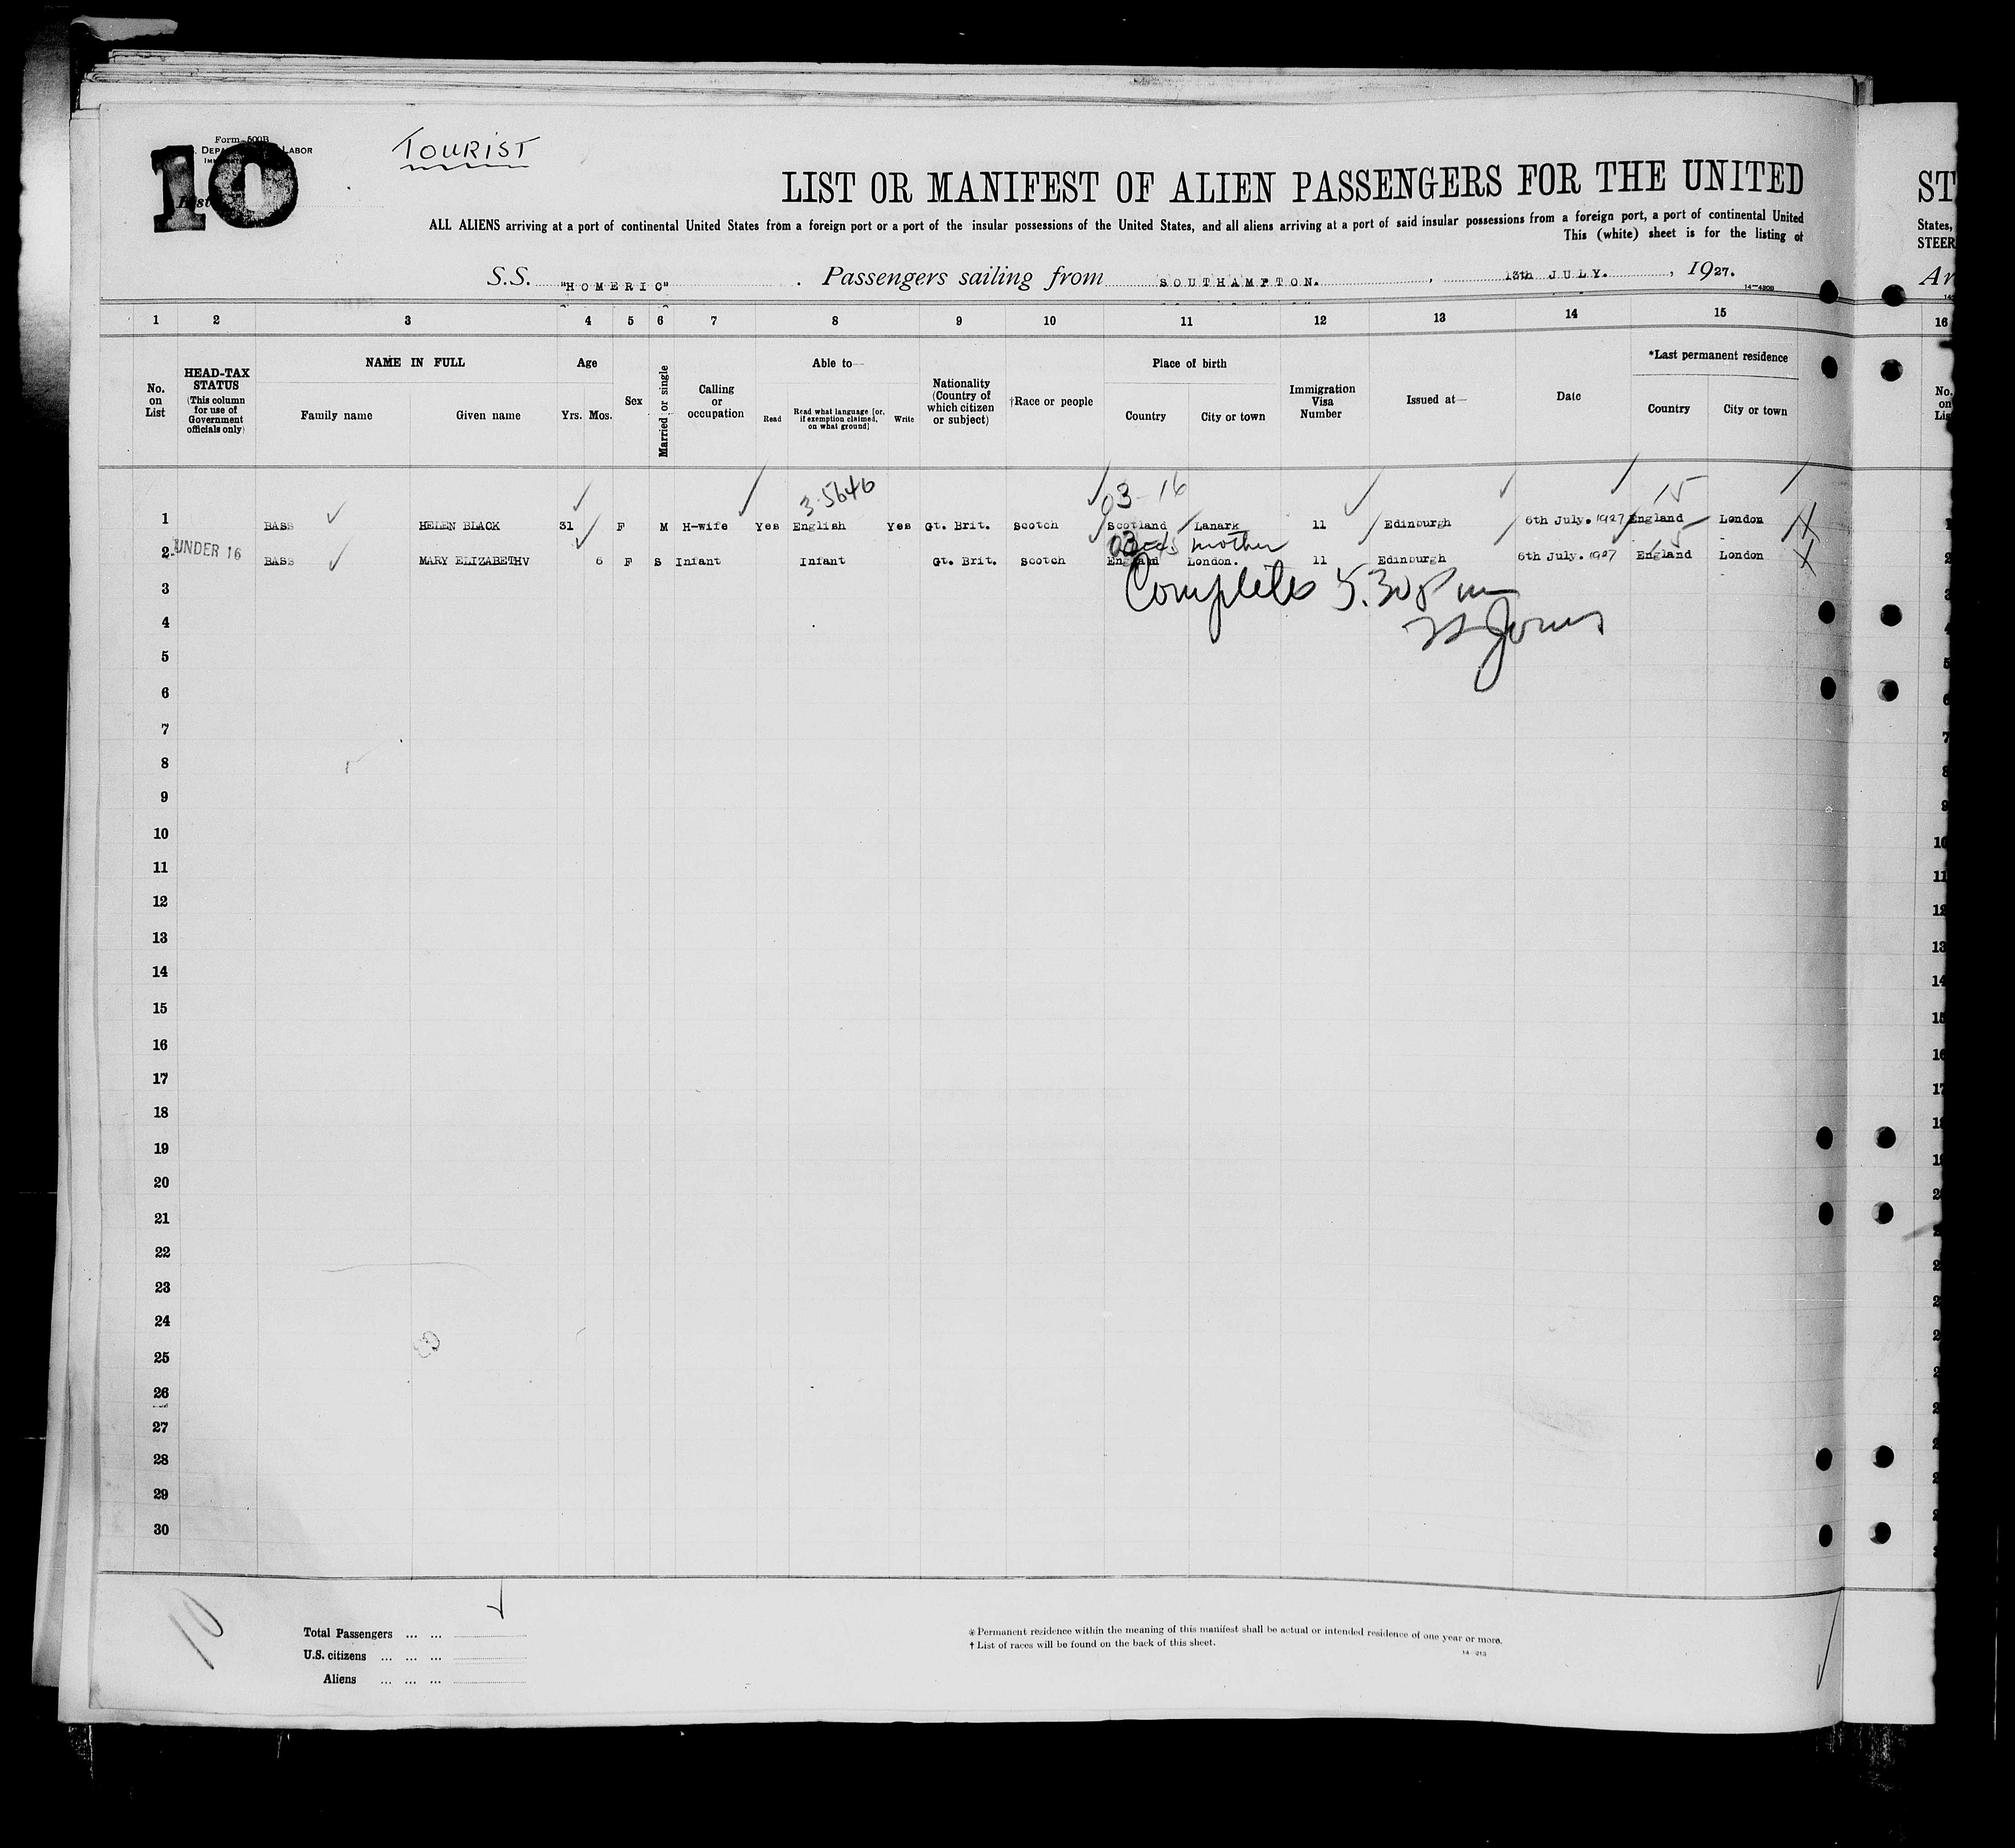 Form 500B
LABOR
10
List
TOURIST
LIST OR MANIFEST OF ALIEN PASSENGERS FOR THE UNITED
ALL ALIENS arriving at a port of continental United States from a foreign port or a port of the insular possessions of the United States, and all aliens arriving at a port of said insular possessions from a foreign port, a port of continental United
This (white) sheet is for the listing of
S.S. "HOMERIC" . Passengers sailing from SOUTHAMPTON. , 13th JULY. , 1927.
1 2 3 4 5 6 7 8 9 10 11 12 13 14 15
No. on List
HEAD-TAX STATUS (This column for use of Government officials only)
NAME IN FULL
Family name Given name
Age
Yrs. Mos.
Sex
Married or single
Calling or occupation
Able to—
Read Read what language [or, if exemption claimed, on what ground] Write
Nationality (Country of which citizen or subject)
†Race or people
Place of birth
Country City or town
Immigration Visa Number
Issued at—
Date
*Last permanent residence
Country City or town
3-5646 03-16 15
1 BASS HELEN BLACK 31 F M H-wife Yes English Yes Gt. Brit. Scotch Scotland Lanark 11 Edinburgh 6th July. 1927 England London
mother 15
2 UNDER 16 BASS MARY ELIZABETHV 6 F S Infant Infant Gt. Brit. Scotch England London. 11 Edinburgh 6th July. 1927 England London
Complete 5.30 Pm
Jones
3
4
5
6
7
8
9
10
11
12
13
14
15
16
17
18
19
20
21
22
23
24
25
26
27
28
29
30
10
Total Passengers ... ...
U.S. citizens ... ... ...
Aliens ... ... ...
* Permanent residence within the meaning of this manifest shall be actual or intended residence of one year or more.
† List of races will be found on the back of this sheet.
ST
States,
STEER
Ar
16
No. on Lis